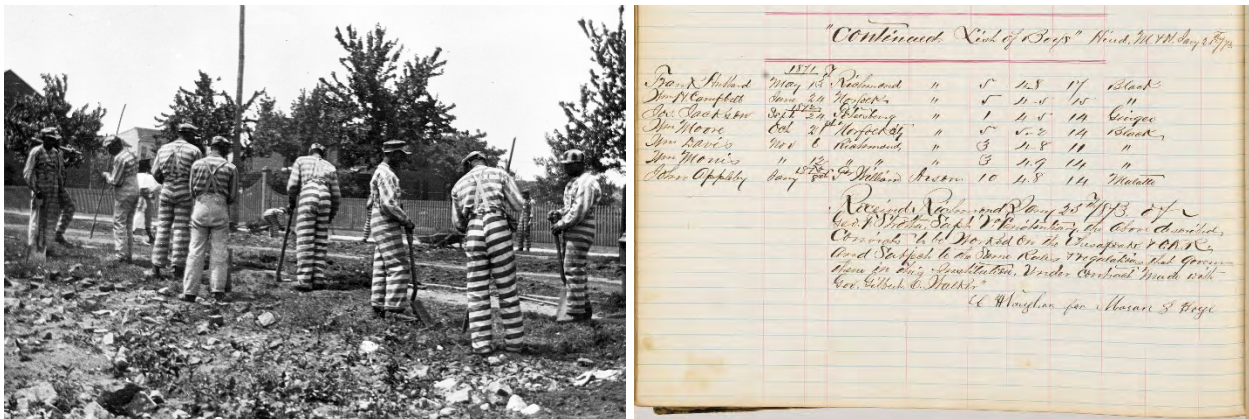 "Continued. List of Boys" Hired. M & H. Jany 25th/73
1871
Frank Hubbard May 12 Richmond " 5 4.8 17 Black
Wm H Campbell June 24 Norfolk " 5 4-5 15 "
1872
Joe Jackson Sept 24 Petersburg " 1 4.5 14 Ginger
Wm Moore Oct 21st Norfolk Cy " 5 5-2 14 Black
Wm Davis Nov 6 Richmond " 3 4.8 10 "
Wm Morris " 12 " " " 3 4.9 14 "
1873
Jany Pr William Arson 10 4.8 14 Mulatto
Received, Richmond Jany 25th 1873 of
Geo. F Strother, Supt Va Penitentiary the above described,
Convicts to be Worked on the Chesapeake & O.R.R.
and Subject to the Same Rules & regulations that govern
them in this Institution. Under Contract Made with
Gov. Gilbert C. Walker"
for Mason &